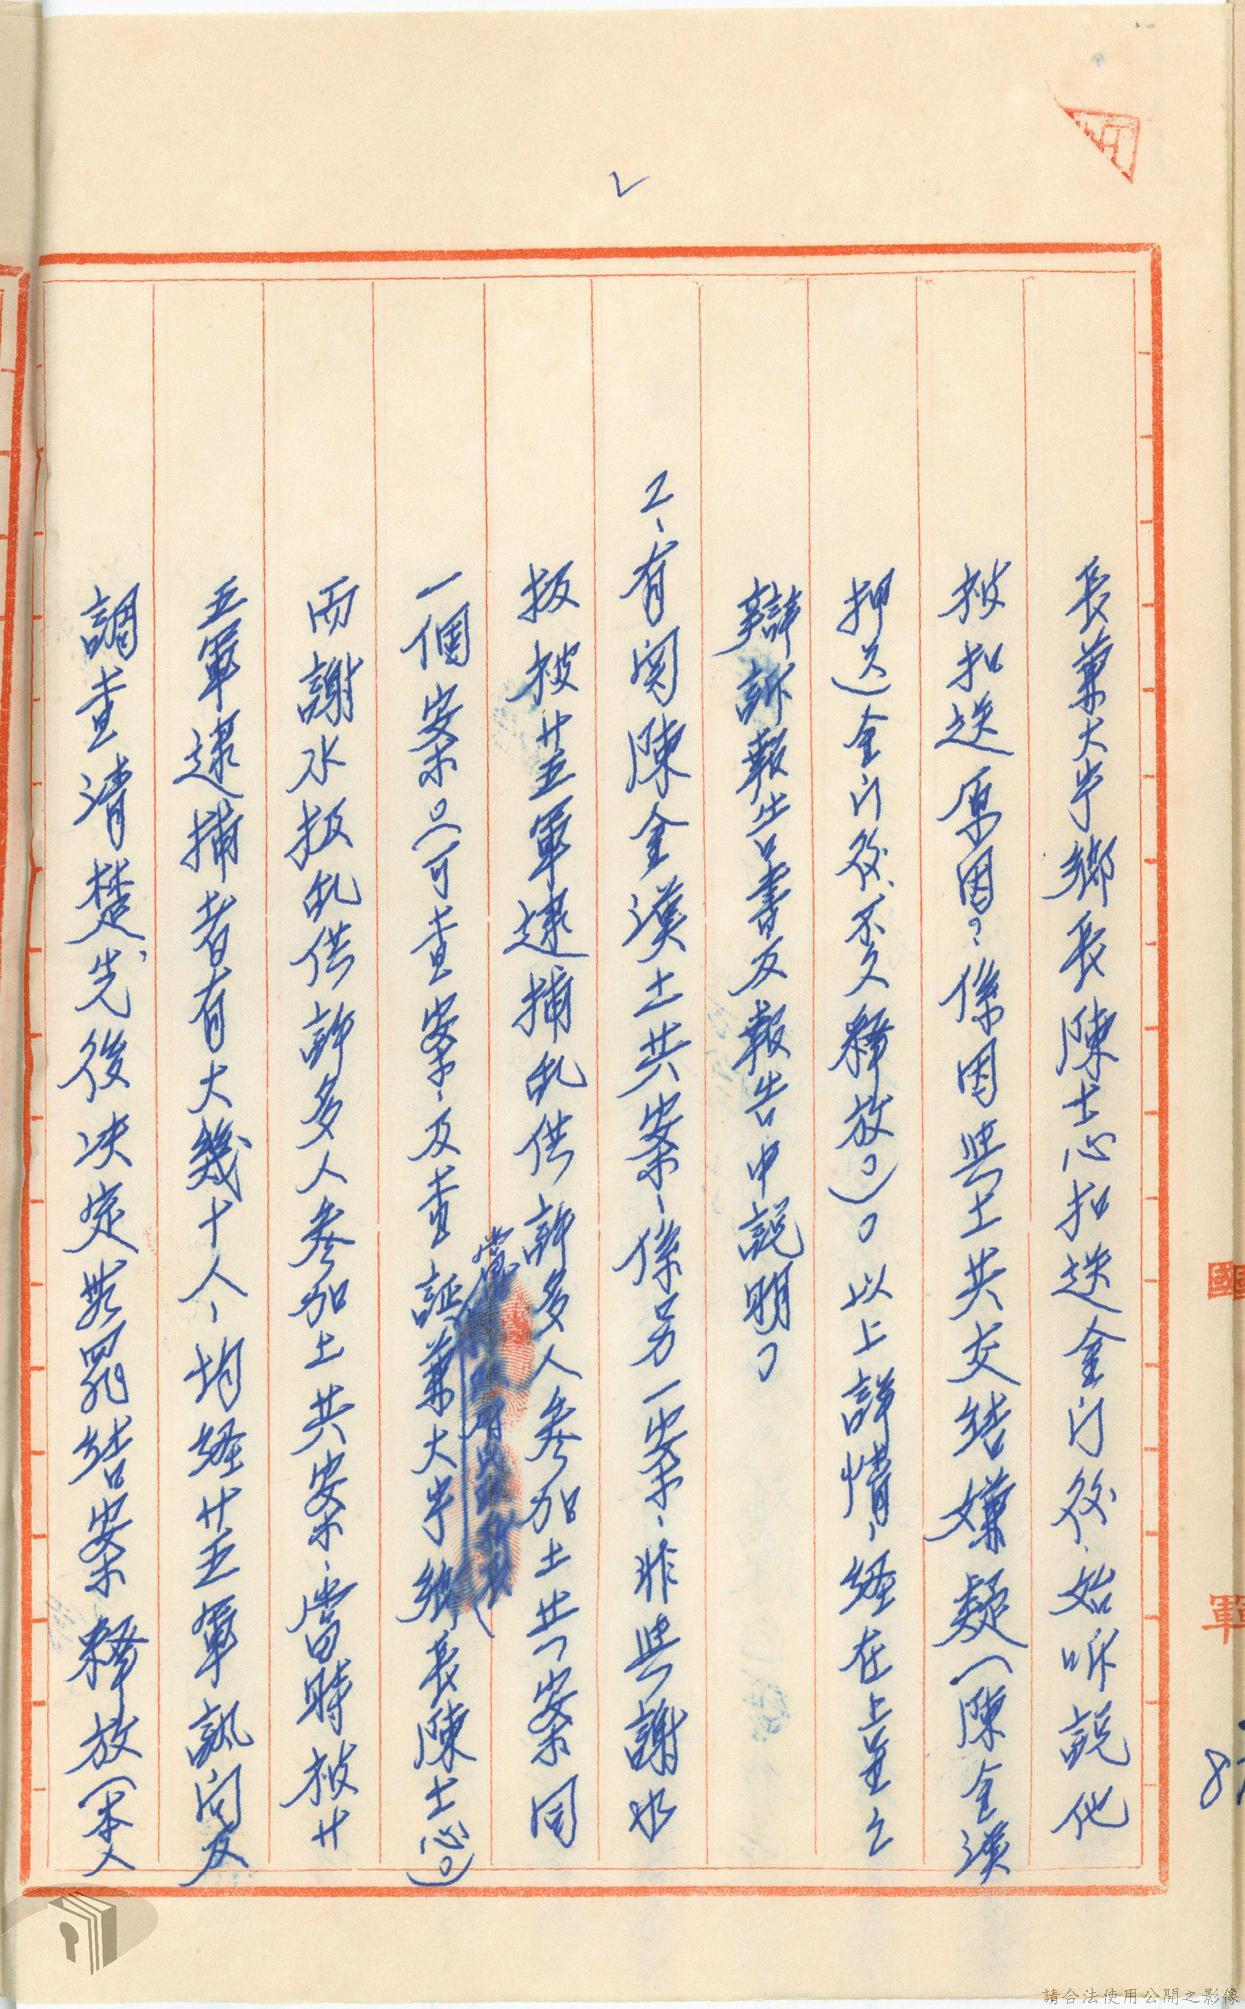 長兼大宇鄉長陳士心扣送金门後、始听說他
被扣送原因?係因與土共交结嫌疑(陳金漢
押送金门後、不久釋放。)。以上詳情、經在上呈之
辯訴報告書及報告中說明。
2、有関陳金漢土共案、係另一案、非與謝水
扳被廿五軍逮捕乱供許多人參加土共案同
一個案。(可查案、及查証兼大宇鄉長陳士心。)
當時
而謝水扳乱供許多人參加土共案、當時被廿
五軍逮捕者有大幾十人、均經廿五軍訊问及
調查清楚、先後决定無罪结案釋放(本人
請合法使用公開之影像
國
軍
8